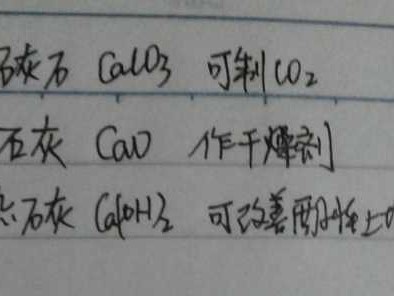 石灰石 CaCO3 可制CO2
石灰 CaO 作干燥剂
石灰 Ca(OH)2 可改善酸性土